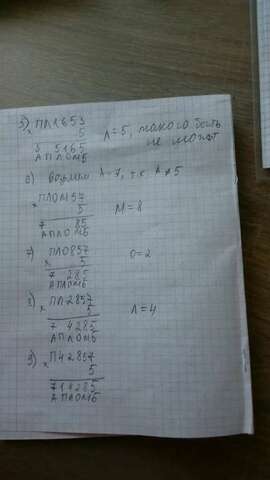 5) × ПЛ1653
5
5 5165
АПЛОМБ
Л=5, такого быть
не может
6) возьмем А=7, т.к. А≠5
× ПЛОМ57
5
7 85
АПЛОМБ
М=8
7) × ПЛО857
5
7 285
АПЛОМБ
О=2
8) × ПЛ2857
5
7 4285
АПЛОМБ
Л=4
9) × П42857
5
714285
АПЛОМБ